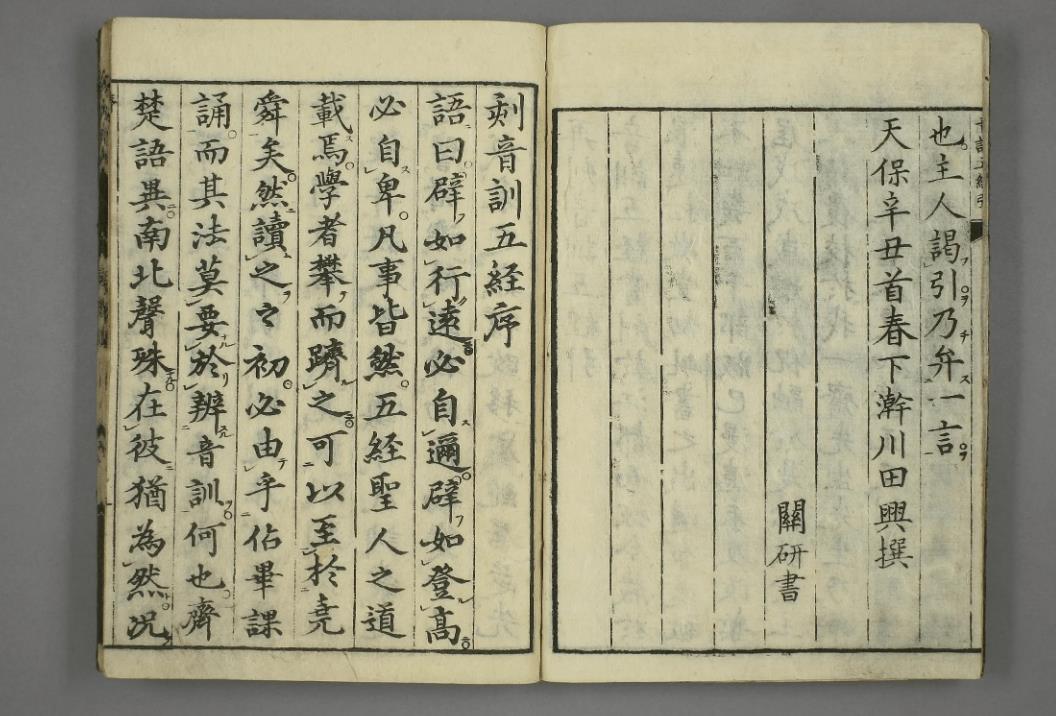 也主人謁引乃弁一言
天保辛丑首春下澣川田興撰
關研書
刻音訓五経序
語曰辟如行遠必自邇辟如登髙
必自卑凡事皆然五経聖人之道
載焉學者攀而躋之可以至於堯
舜矣然讀之之初必由乎佔畢課
誦而其法莫要於辨音訓何也齊
楚語異南北聲殊在彼猶為然况